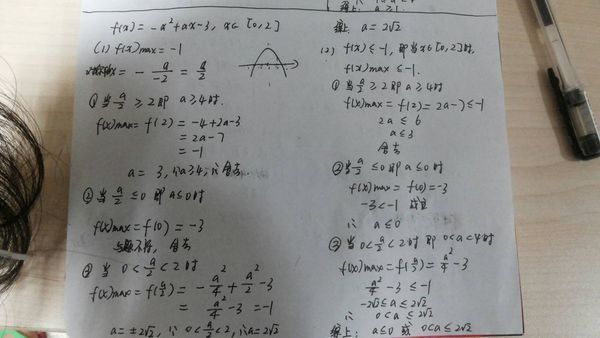 f(x) = -x²+ax-3, x∈[0,2]
(1) f(x)max = -1
对称轴x = - a/-2 = a/2
① 当 a/2 ≥ 2 即 a≥4时.
f(x)max = f(2) = -4+2a-3
= 2a-7
= -1
a = 3, ∵a≥4, ∴舍去.
② 当 a/2 ≤0 即 a≤0时
f(x)max=f(0) = -3
与题不符, 舍去
③ 当 0< a/2 <2 时
f(x)max = f(a/2) = - a²/4 + a²/2 -3
= a²/4 -3 = -1
a= ±2√2, ∵ 0< a/2 <2, ∴a=2√2
综上: a≥1.
综上, a=2√2
(2) f(x)≤-1, 即当x∈[0,2]时,
f(x)max ≤-1.
① 当 a/2 ≥2 即 a≥4时
f(x)max = f(2) = 2a-7≤-1
2a ≤ 6
a≤3
舍去
② 当 a/2 ≤0 即 a≤0时
f(x)max = f(0)=-3
-3<-1 成立
∴ a≤0
③ 当 0< a/2 <2时 即 0<a<4时
f(x)max = f(a/2) = a²/4 -3
a²/4 -3 ≤-1
-2√2≤a≤2√2
∴ 0<a≤2√2
综上: a≤0 或 0<a≤2√2